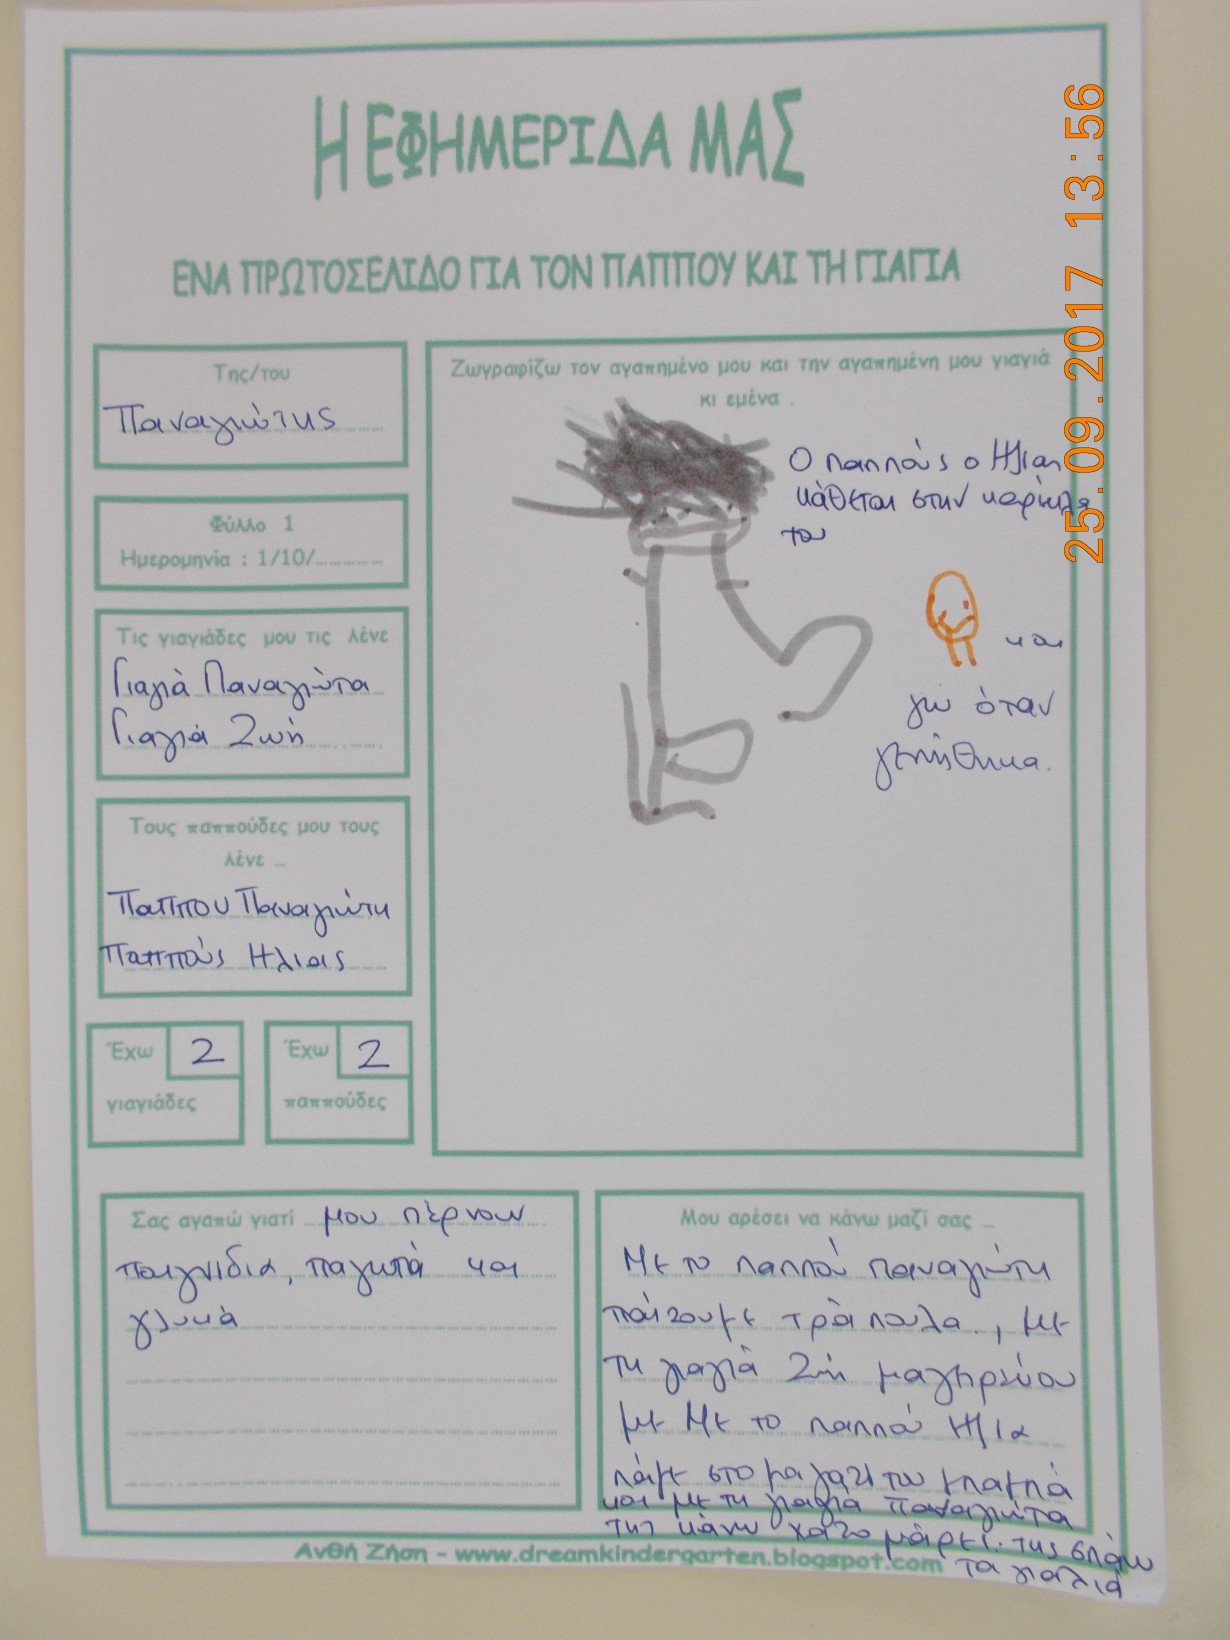 Η ΕΦΗΜΕΡΙΔΑ ΜΑΣ
ΕΝΑ ΠΡΩΤΟΣΕΛΙΔΟ ΓΙΑ ΤΟΝ ΠΑΠΠΟΥ ΚΑΙ ΤΗ ΓΙΑΓΙΑ
25.09.2017 13:56
Της/του
Παναγιώτης
Φύλλο 1
Ημερομηνία : 1/10/..............
Τις γιαγιάδες μου τις λένε
Γιαγιά Παναγιώτα
Γιαγιά Ζωή
Τους παππούδες μου τους
λένε ...
Παππου Παναγιώτη
Παππούς Ηλιας
Έχω 2
γιαγιάδες
Έχω 2
παππούδες
Ζωγραφίζω τον αγαπημένο μου και την αγαπημένη μου γιαγιά
κι εμένα .
Ο παππούς ο Ηλίας
κάθεται στην καρέκλα
του
και
γω όταν
γεννήθηκα.
Σας αγαπώ γιατί μου πέρνουν
παιχνιδια, παγωτά και
γλυκά
Μου αρέσει να κάνω μαζί σας ...
Με το παππού παναγιώτη
παίζουμε τράπουλα, με
τη γιαγιά Ζωή μαγηρεύου
με Με το παππού Ηλία
πάμε στο μαγαζί του μπαμπά
και με τη γιαγιά Παναγιώτα
της κάνω χάτο μάρει. της σπάω
τα γιαλιά
Ανθή Ζήση - www.dreamkindergarten.blogspot.com